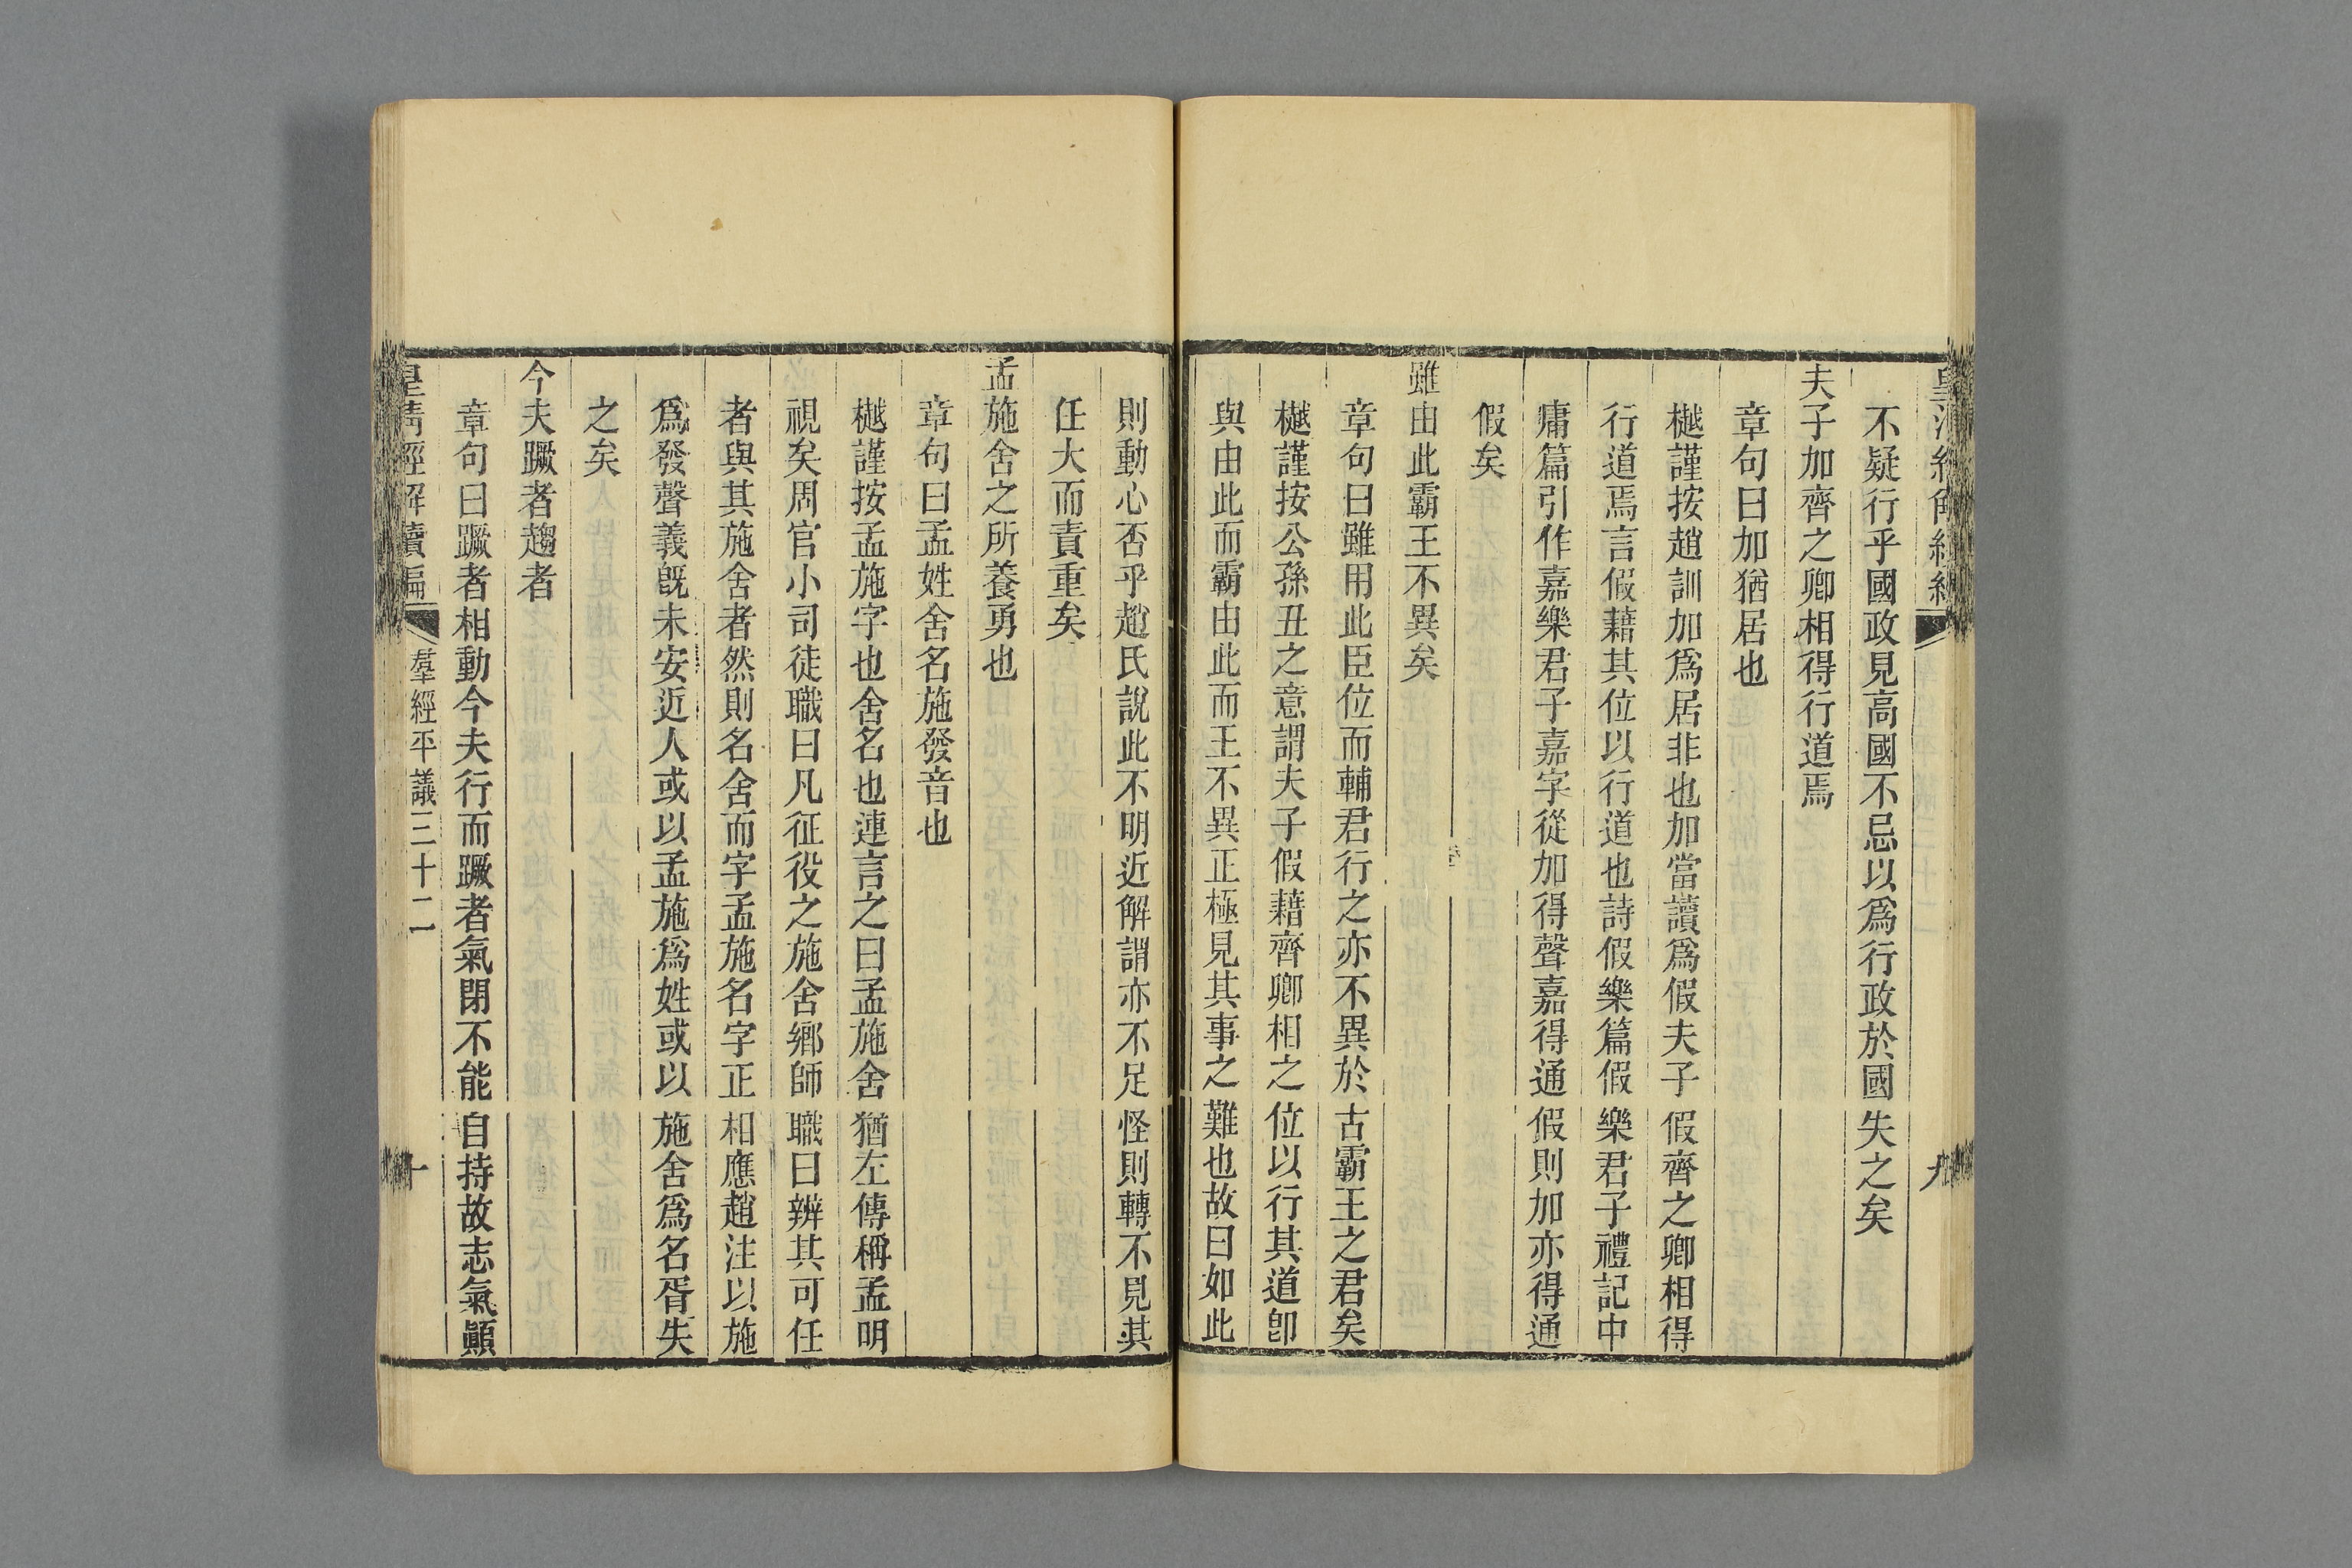 不疑行乎國政見高國不忌以爲行政於國失之矣
夫子加齊之卿相得行道焉
章句曰加猶居也
樾謹按趙訓加爲居非也加當讀爲假夫子假齊之卿相得
行道焉言假藉其位以行道也詩假樂篇假樂君子禮記中
庸篇引作嘉樂君子嘉字從加得聲嘉得通假則加亦得通
假矣
雖由此霸王不異矣
章句曰雖用此臣位而輔君行之亦不異於古霸王之君矣
樾謹按公孫丑之意謂夫子假藉齊卿相之位以行其道卽
與由此而霸由此而王不異正極見其事之難也故曰如此
九
則動心否乎趙氏說此不明近解謂亦不足怪則轉不見其
任大而責重矣
孟施舍之所養勇也
章句曰孟姓舍名施發音也
樾謹按孟施字也舍名也連言之曰孟施舍猶左傳稱孟明
視矣周官小司徒職曰凡征役之施舍鄉師職曰辨其可任
者與其施舍者然則名舍而字孟施名字正相應趙注以施
爲發聲義旣未安近人或以孟施爲姓或以施舍爲名胥失
之矣
今夫蹶者趨者
章句曰蹶者相動今夫行而蹶者氣閉不能自持故志氣顚
皇淸經解續編
羣經平議三十二
十